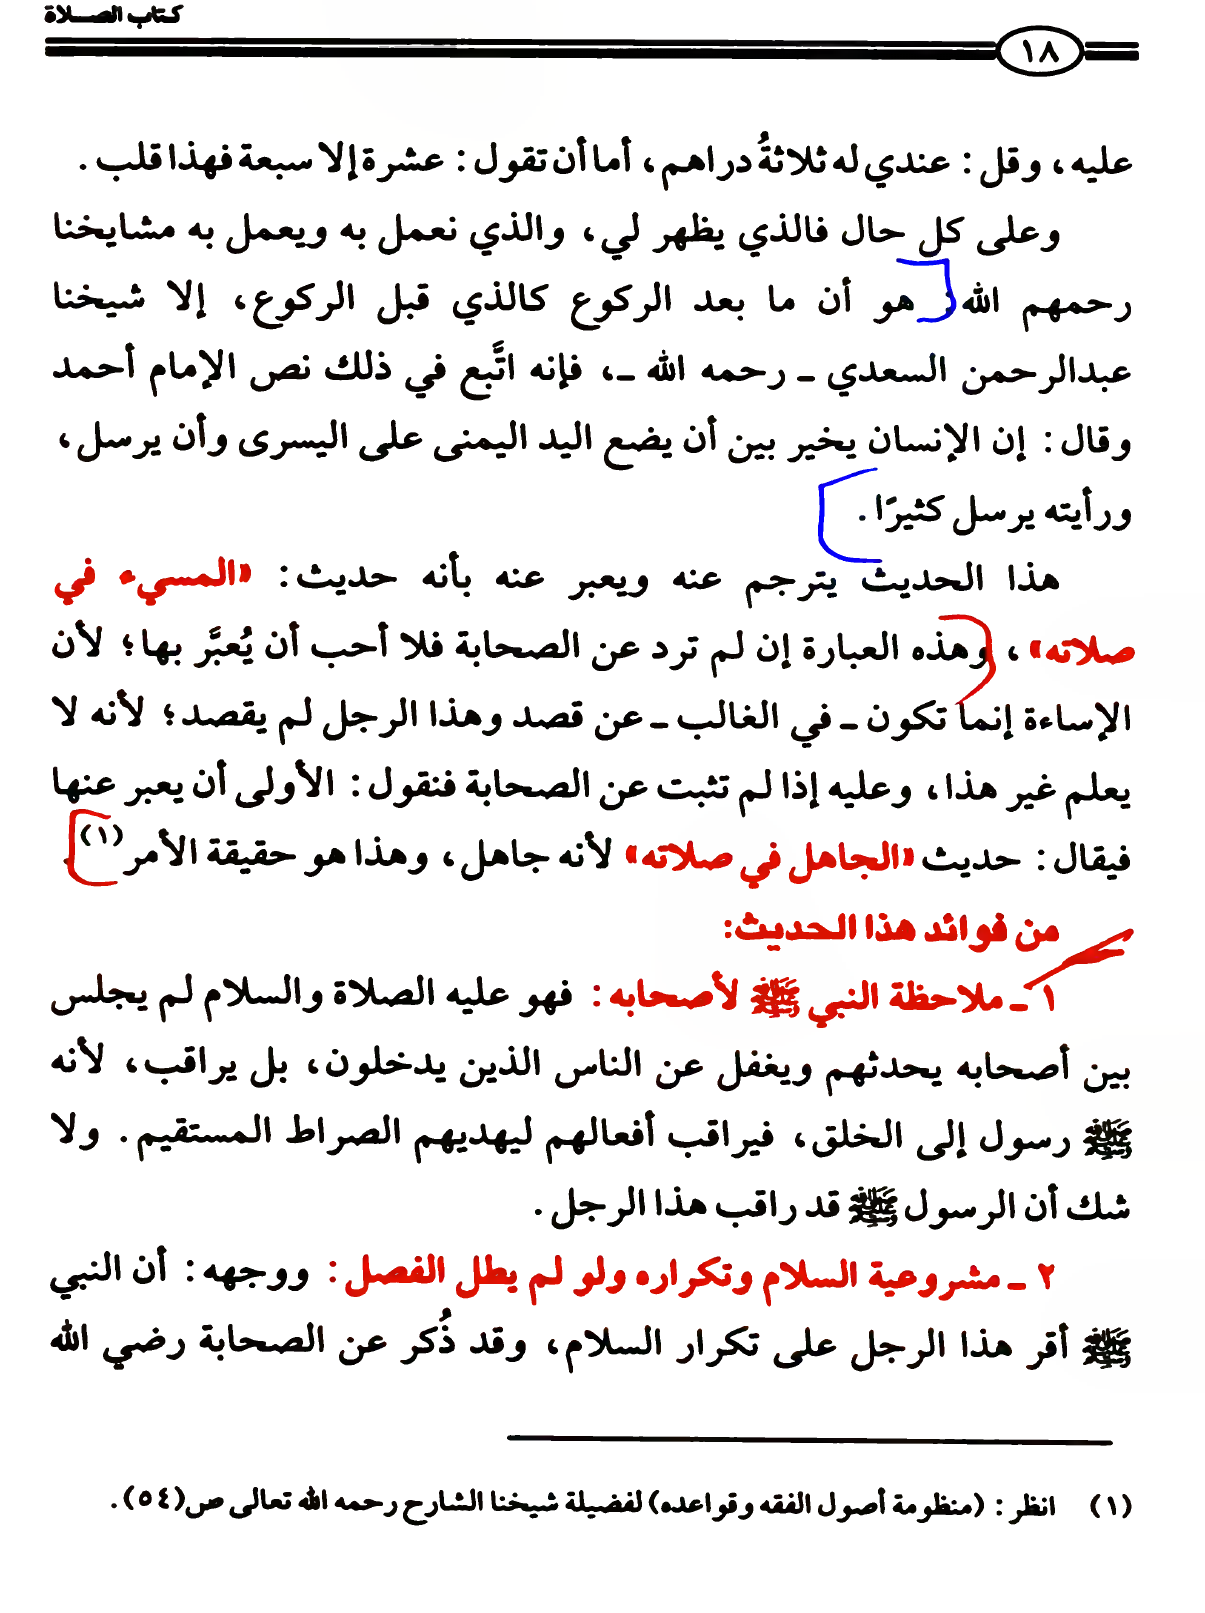 كتاب الصلاة
١٨
عليه، وقل: عندي له ثلاثةُ دراهم، أما أن تقول: عشرة إلا سبعة فهذا قلب.
وعلى كل حال فالذي يظهر لي، والذي نعمل به ويعمل به مشايخنا
رحمهم الله: هو أن ما بعد الركوع كالذي قبل الركوع، إلا شيخنا
عبدالرحمن السعدي ـ رحمه الله ـ، فإنه اتَّبع في ذلك نص الإمام أحمد
وقال: إن الإنسان يخير بين أن يضع اليد اليمنى على اليسرى وأن يرسل،
ورأيته يرسل كثيرًا.
هذا الحديث يترجم عنه ويعبر عنه بأنه حديث: «المسيء في
صلاته»، وهذه العبارة إن لم ترد عن الصحابة فلا أحب أن يُعبَّر بها؛ لأن
الإساءة إنما تكون ـ في الغالب ـ عن قصد وهذا الرجل لم يقصد؛ لأنه لا
يعلم غير هذا، وعليه إذا لم تثبت عن الصحابة فنقول: الأولى أن يعبر عنها
فيقال: حديث «الجاهل في صلاته» لأنه جاهل، وهذا هو حقيقة الأمر(١)
من فوائد هذا الحديث:
١ ـ ملاحظة النبي ﷺ لأصحابه: فهو عليه الصلاة والسلام لم يجلس
بين أصحابه يحدثهم ويغفل عن الناس الذين يدخلون، بل يراقب، لأنه
ﷺ رسول إلى الخلق، فيراقب أفعالهم ليهديهم الصراط المستقيم. ولا
شك أن الرسول ﷺ قد راقب هذا الرجل.
٢ ـ مشروعية السلام وتكراره ولو لم يطل الفصل: ووجهه: أن النبي
ﷺ أقر هذا الرجل على تكرار السلام، وقد ذُكر عن الصحابة رضي الله
(١) انظر: (منظومة أصول الفقه وقواعده) لفضيلة شيخنا الشارح رحمه الله تعالى ص(٥٤).